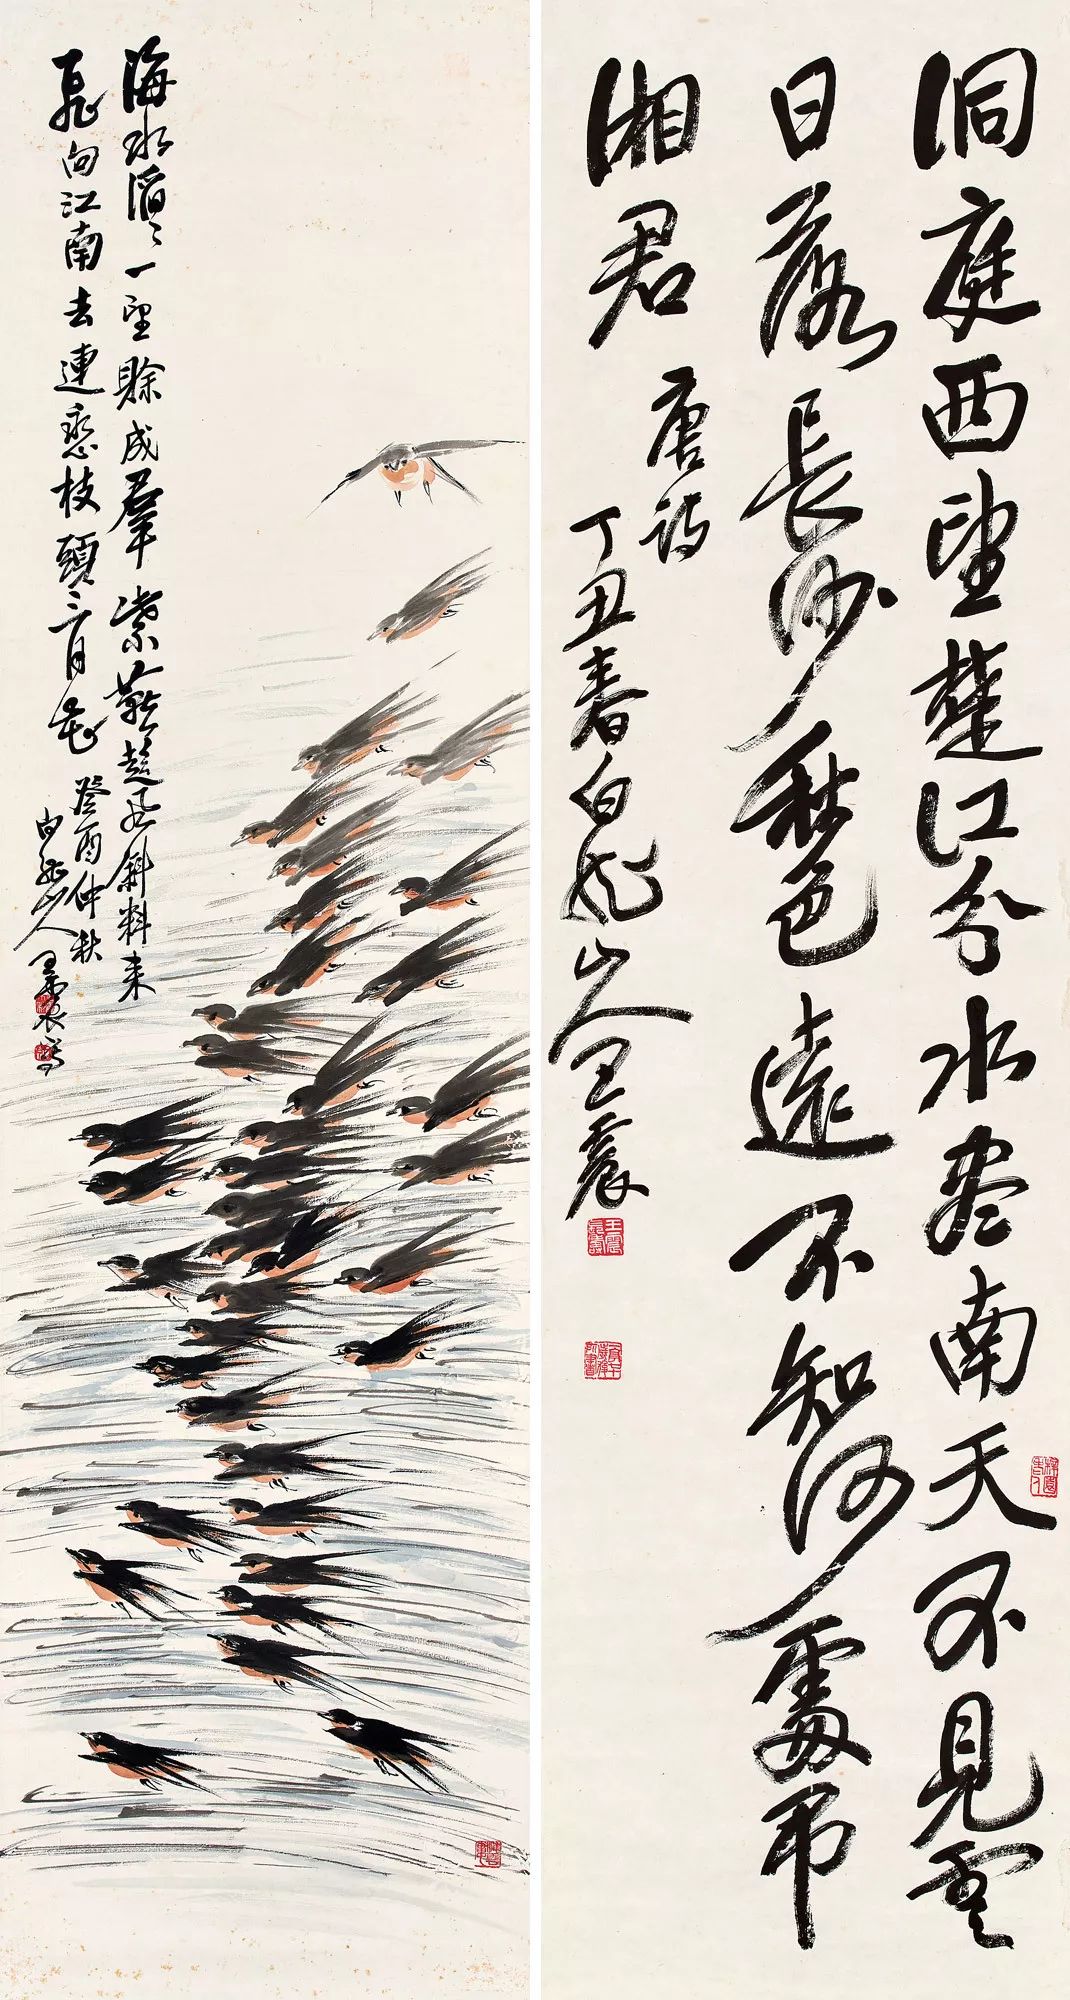 洞庭西望楚江分水尽南天不見雲
日落長沙秋色遠不知何處弔
湘君
唐詩
丁丑春白龍山人王震
海水滔々一望賒成羣紫燕趁風斜料来
飛向江南去連戀枝頭三月花
癸酉仲秋
白龍山人王震写